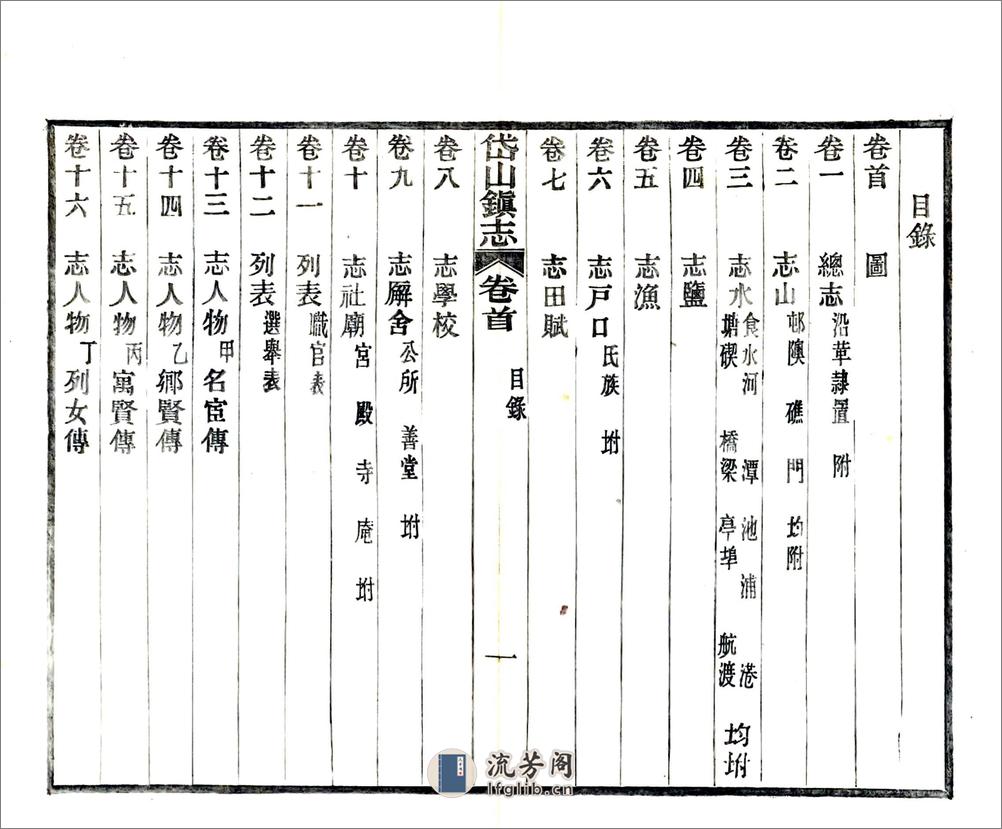 目錄
卷首 圖
卷一 總志 沿革隸置 附
卷二 志山 邨隩 礁 門 均附
卷三 志水 食水河 潭 池 浦 港 塘碶 橋梁 亭埠 航渡 均坿
卷四 志鹽
卷五 志漁
卷六 志戶口 氏族 坿
卷七 志田賦
岱山鎭志 卷首 目錄 一
卷八 志學校
卷九 志廨舍 公所 善堂 坿
卷十 志社廟 宮 殿 寺 庵 坿
卷十一 列表 職官表
卷十二 列表 選舉表
卷十三 志人物 甲 名宦傳
卷十四 志人物 乙 鄉賢傳
卷十五 志人物 丙 寓賢傳
卷十六 志人物 丁 列女傳
流芳阁
lfglib.cn